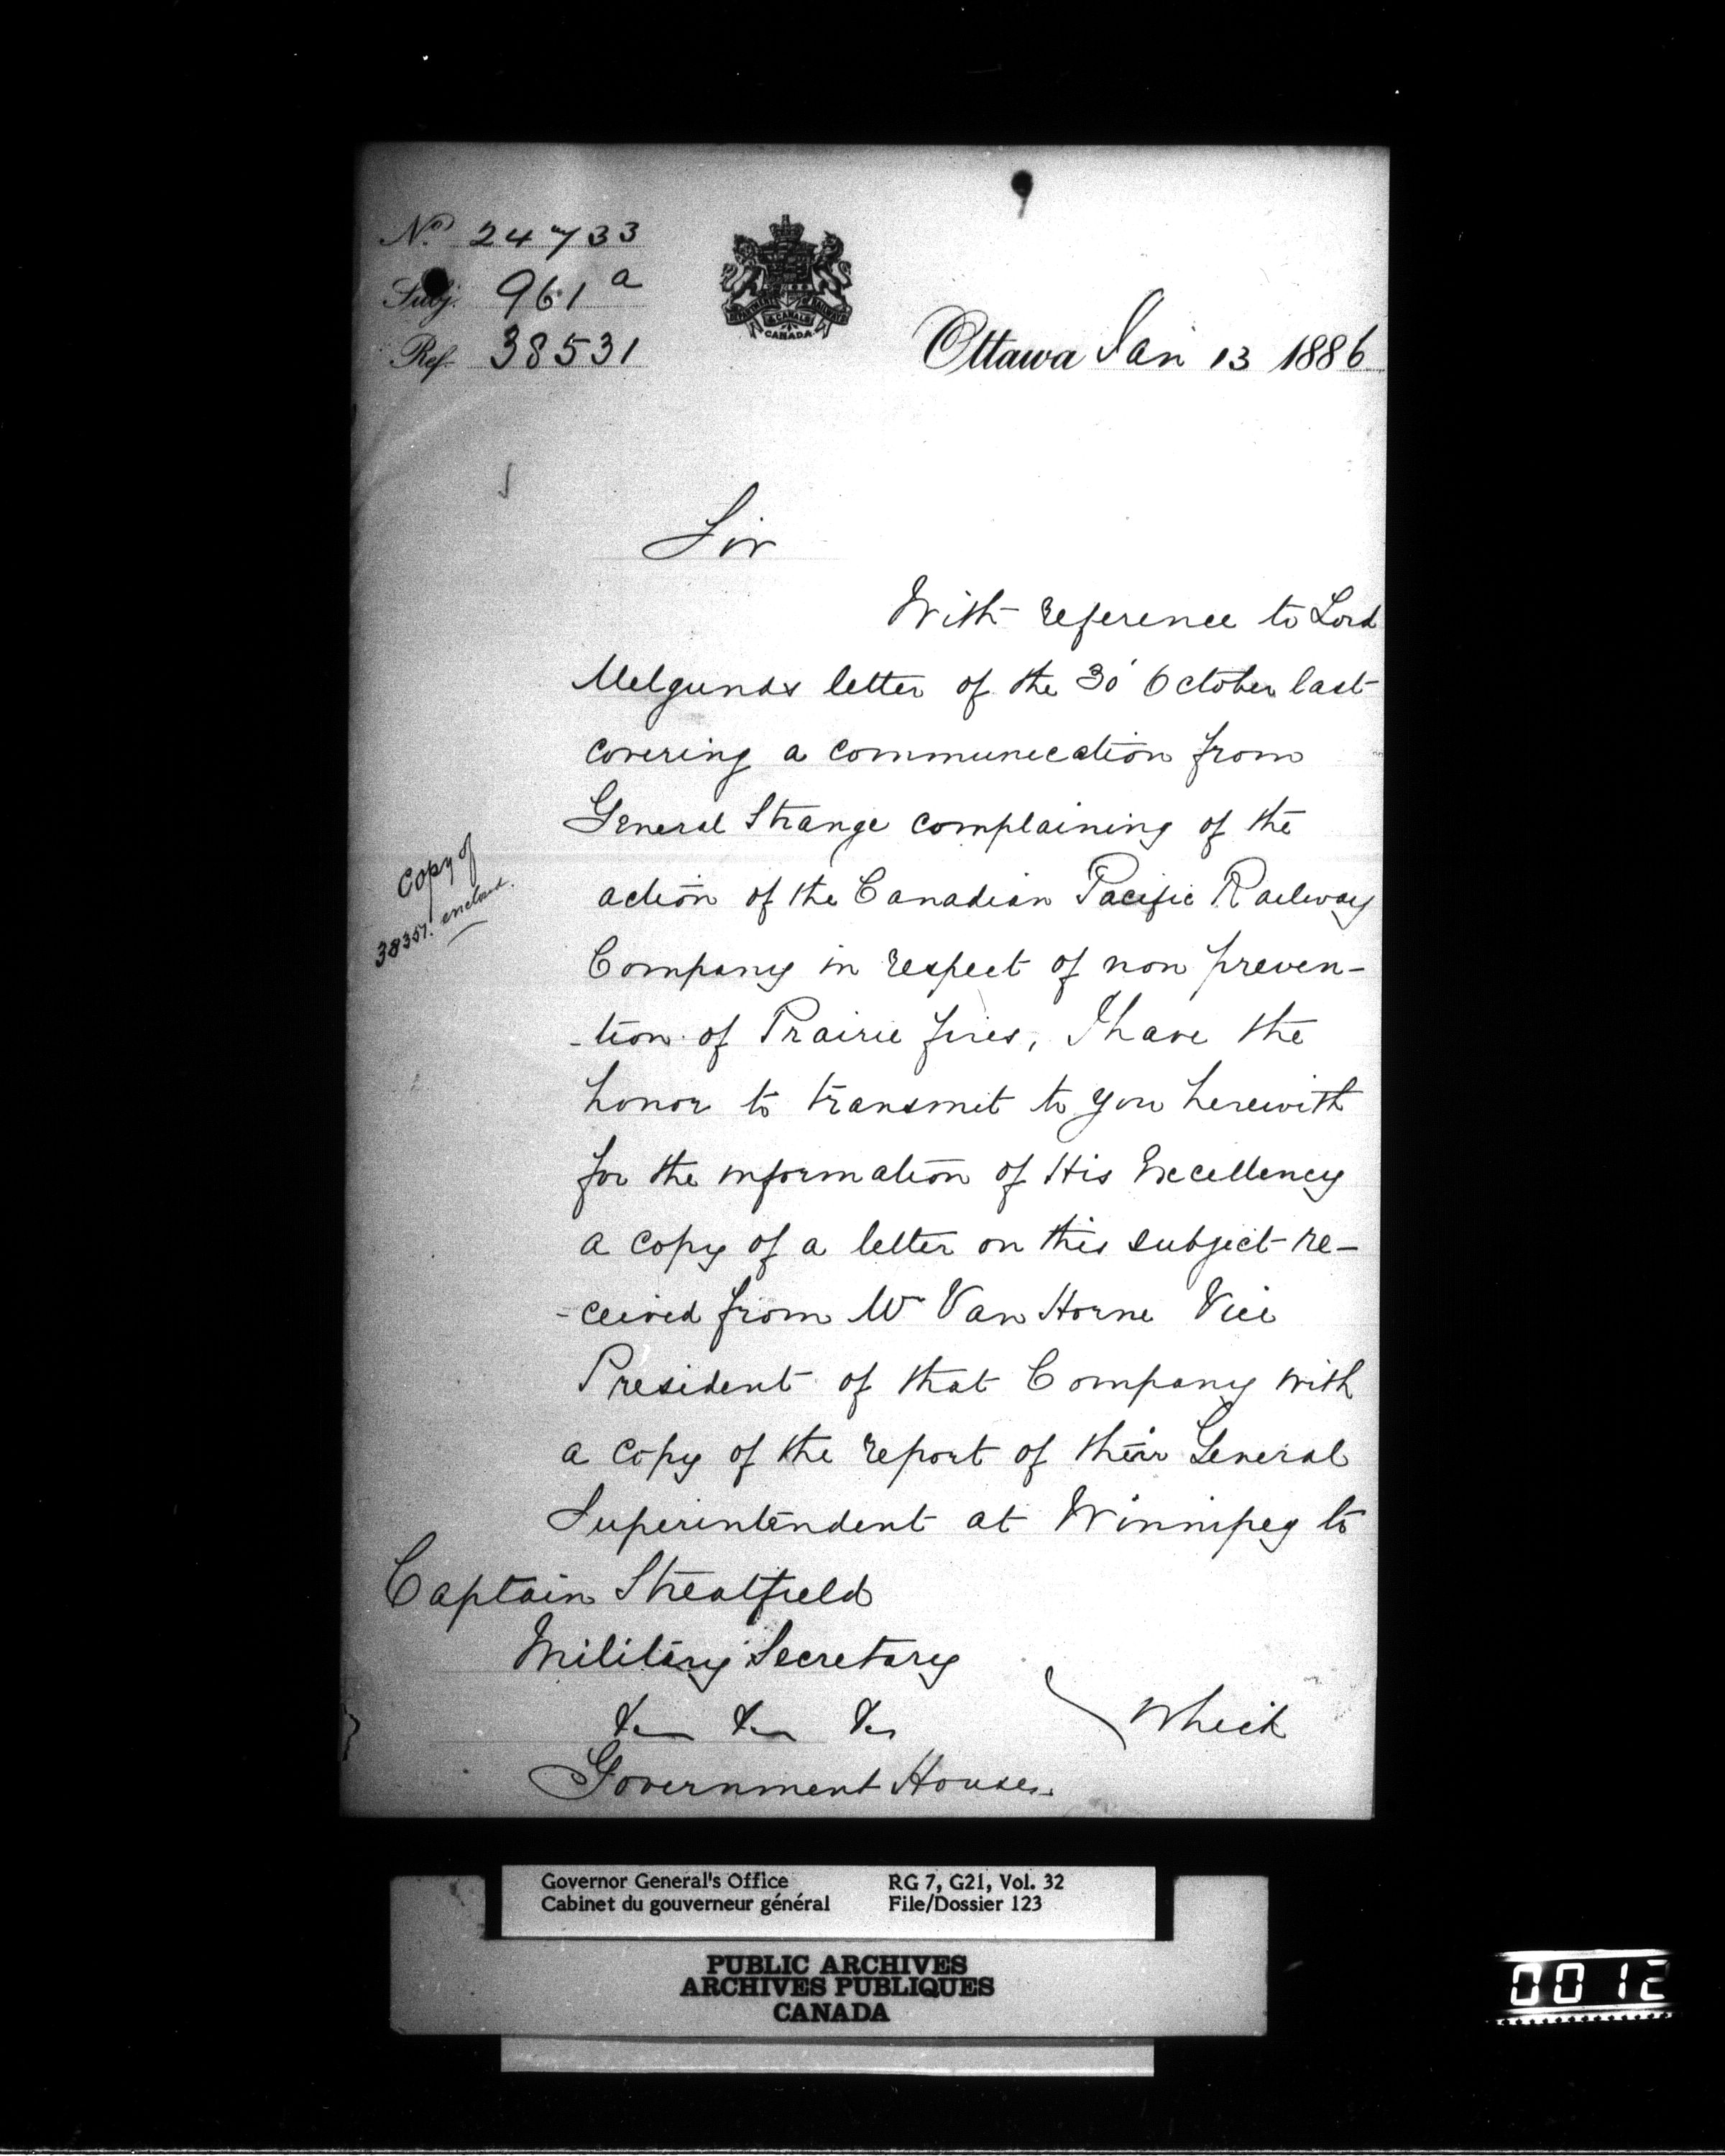 No. 24733
Subj. 961 a
Ref. 38531
DEPARTMENT OF RAILWAYS
& CANALS
CANADA
Ottawa Jan 13 1886
Sir
With reference to Lord
Melgunds letter of the 30' October last
covering a communication from
General Strange complaining of the
action of the Canadian Pacific Railway
Company in respect of non preven-
-tion of Prairie fires, I have the
honor to transmit to you herewith
for the information of His Excellency
a copy of a letter on this subject re-
-ceived from Mr Van Horne Vice
President of that Company with
a copy of the report of their General
Superintendent at Winnipeg to
Copy of
38351. enclosed.
Captain Streatfield
Military Secretary
&c &c &c
Government House.
which
Governor General's Office
Cabinet du gouverneur général
RG 7, G21, Vol. 32
File/Dossier 123
PUBLIC ARCHIVES
ARCHIVES PUBLIQUES
CANADA
0012